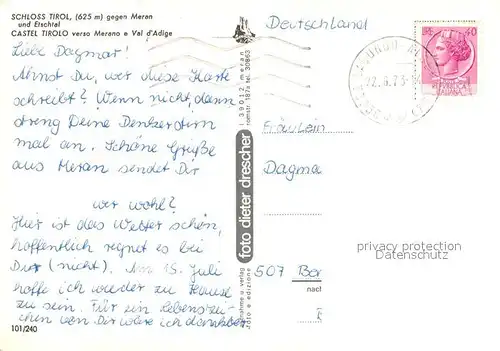 SCHLOSS TIROL, (625 m) gegen Meran
und Etschtal
CASTEL TIROLO verso Merano e Val d'Adige
Liebe Dagmar!
Ahnst Du, wer diese Karte
schreibt? Wenn nicht, dann
streng Deine Denkzentren
mal an. Schöne Grüße
aus Meran sendet Dir
wer wohl?
Hier ist das Wetter schön,
hoffentlich regnet es bei
Dir (nicht). Am 15. Juli
hoffe ich wieder zu Hause
zu sein. Für ein Lebenszei-
chen von Dir wäre ich dankbar
101/240
foto dieter drescher
I 39012 meran
tel. 30863
aufnahme u. verlag
foto e edizione
Deutschland
LIRE 40
REPUBBLICA
ITALIANA
Fräulein
Dagma
507
nach
privacy protection
Datenschutz